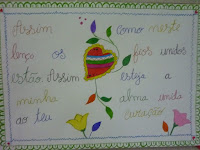 Assim como neste
lenço os fios undos
estão Assim esteja a
minha alma unda
ao teu curação